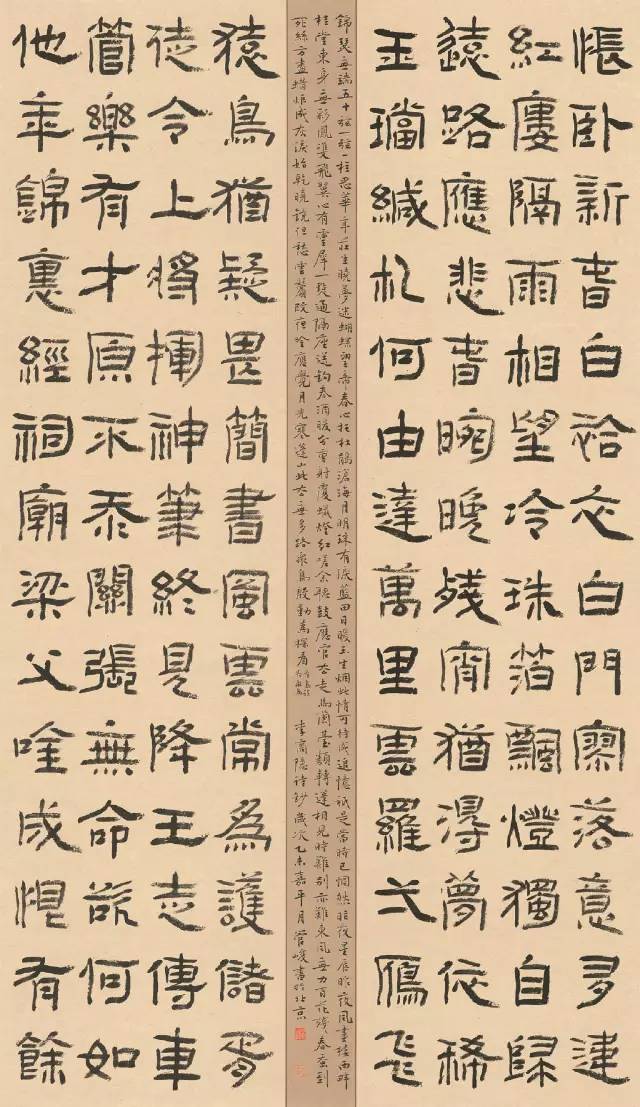 悵臥新春白袷衣白門寥落意多違
紅樓隔雨相望冷珠箔飄燈獨自歸
遠路應悲春晼晚殘宵猶得夢依稀
玉璫緘札何由達萬里雲羅弌鴈飛
錦瑟無端五十弦一弦一柱思華年莊生曉夢迷蝴蝶望帝春心托杜鵑滄海月明珠有淚藍田日暖玉生烟此情可待成追憶祇是當時已惘然昨夜星辰昨夜風畫樓西畔
桂堂東身無彩鳳雙飛翼心有靈犀一點通隔座送鉤春酒暖分曹射覆蠟燈紅嗟余聽鼓應官去走馬蘭臺類轉蓬相見時難別亦難東風無力百花殘春蠶到
死絲方盡蠟炬成灰淚始乾曉鏡但愁雲鬢改夜吟應覺月光寒蓬山此去無多路衆鳥殷勤爲探看 李商隱詩鈔歲次乙未嘉平月管峻書於北京
猿鳥猶疑畏簡書風雲常爲護儲胥
徒令上將揮神筆終見降王走傳車
管樂有才原不忝關張無命欲何如
他年錦裏經祠廟梁父吟成恨有餘